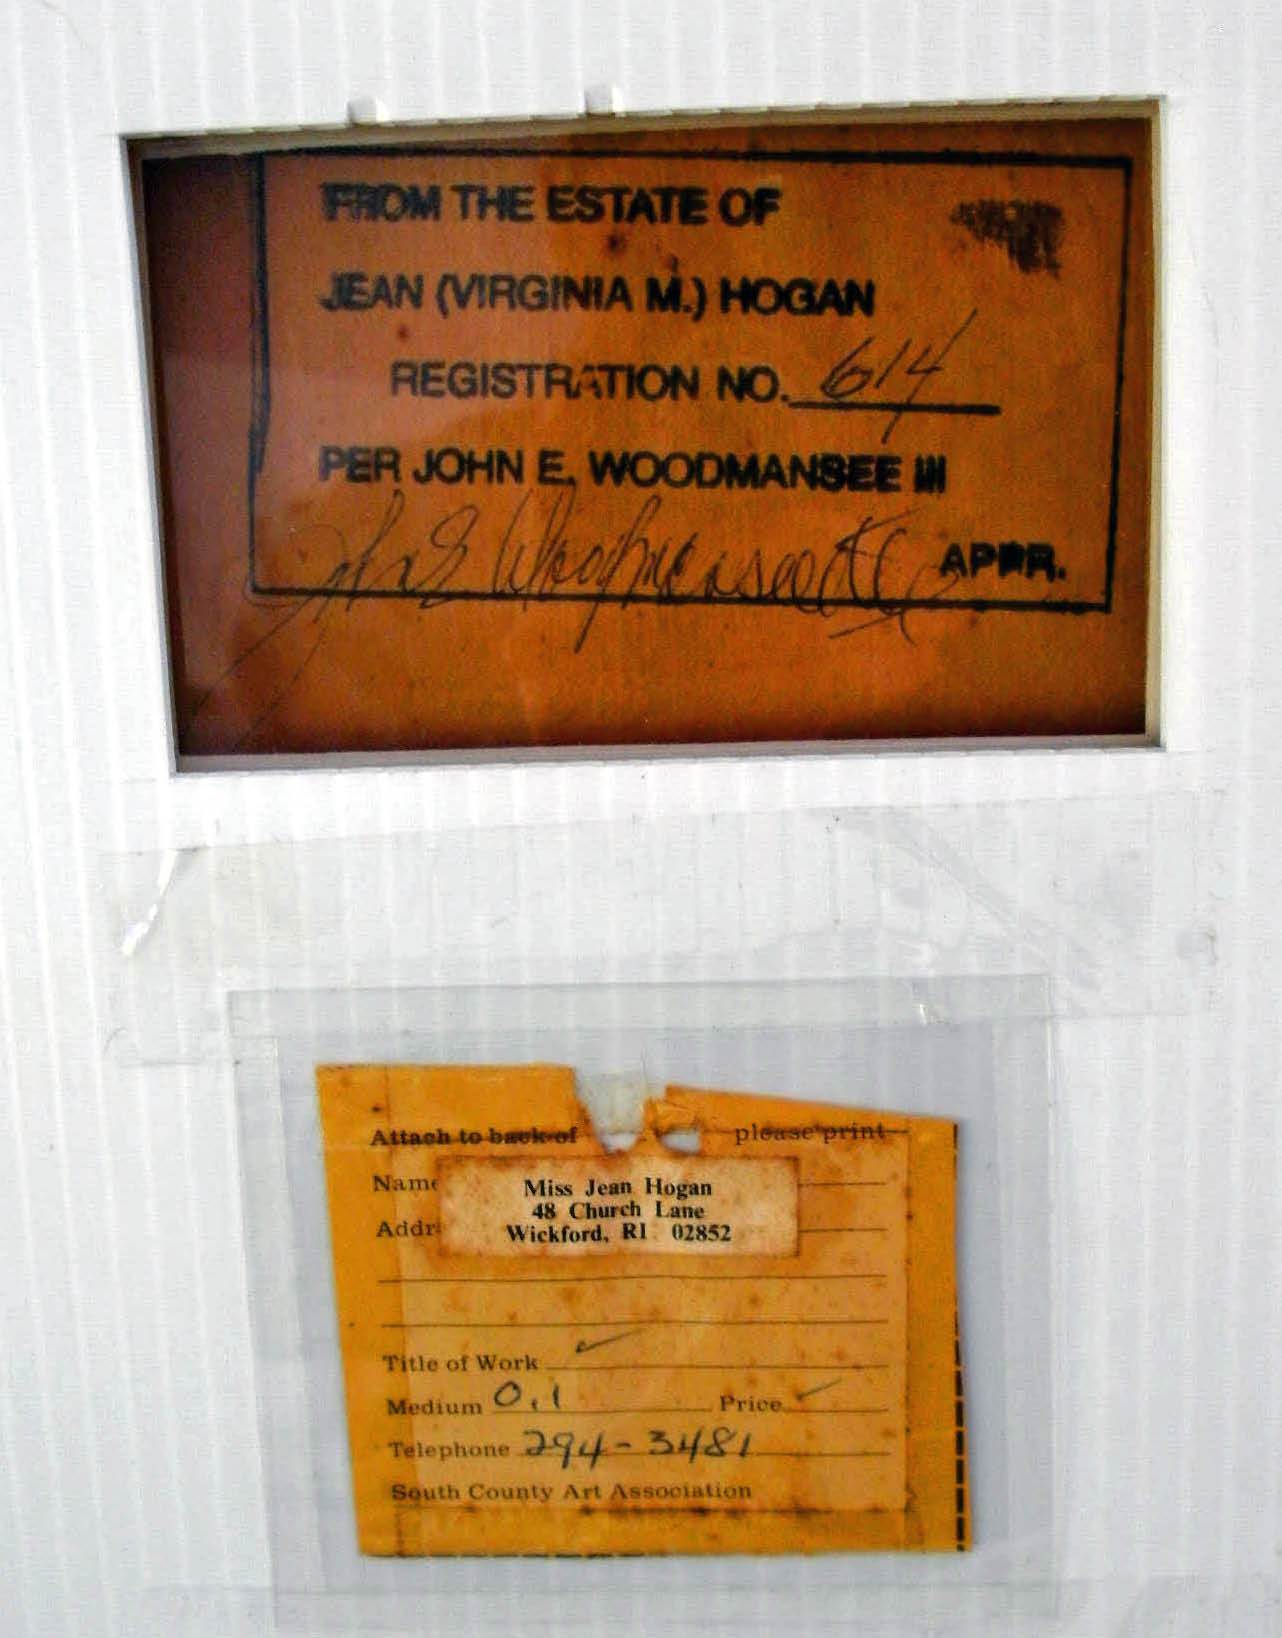 FROM THE ESTATE OF
JEAN (VIRGINIA M.) HOGAN
REGISTRATION NO. 614
PER JOHN E. WOODMANSEE III
John E Woodmansee III APPR.
Attach to back of please print
Name
Addr
Miss Jean Hogan
48 Church Lane
Wickford, RI 02852
Title of Work ✓
Medium Oil Price ✓
Telephone 294-3481
South County Art Association